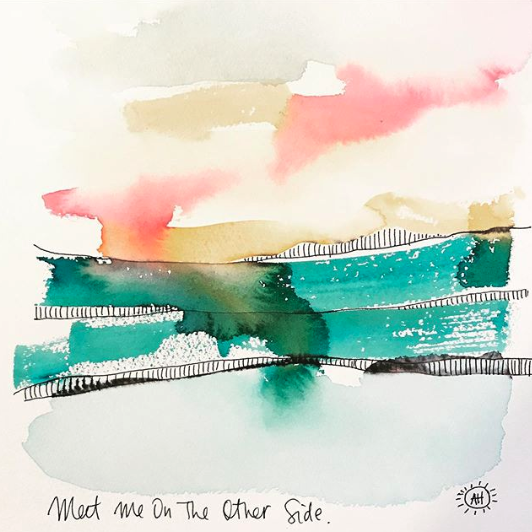 Meet Me On The Other Side.
AH